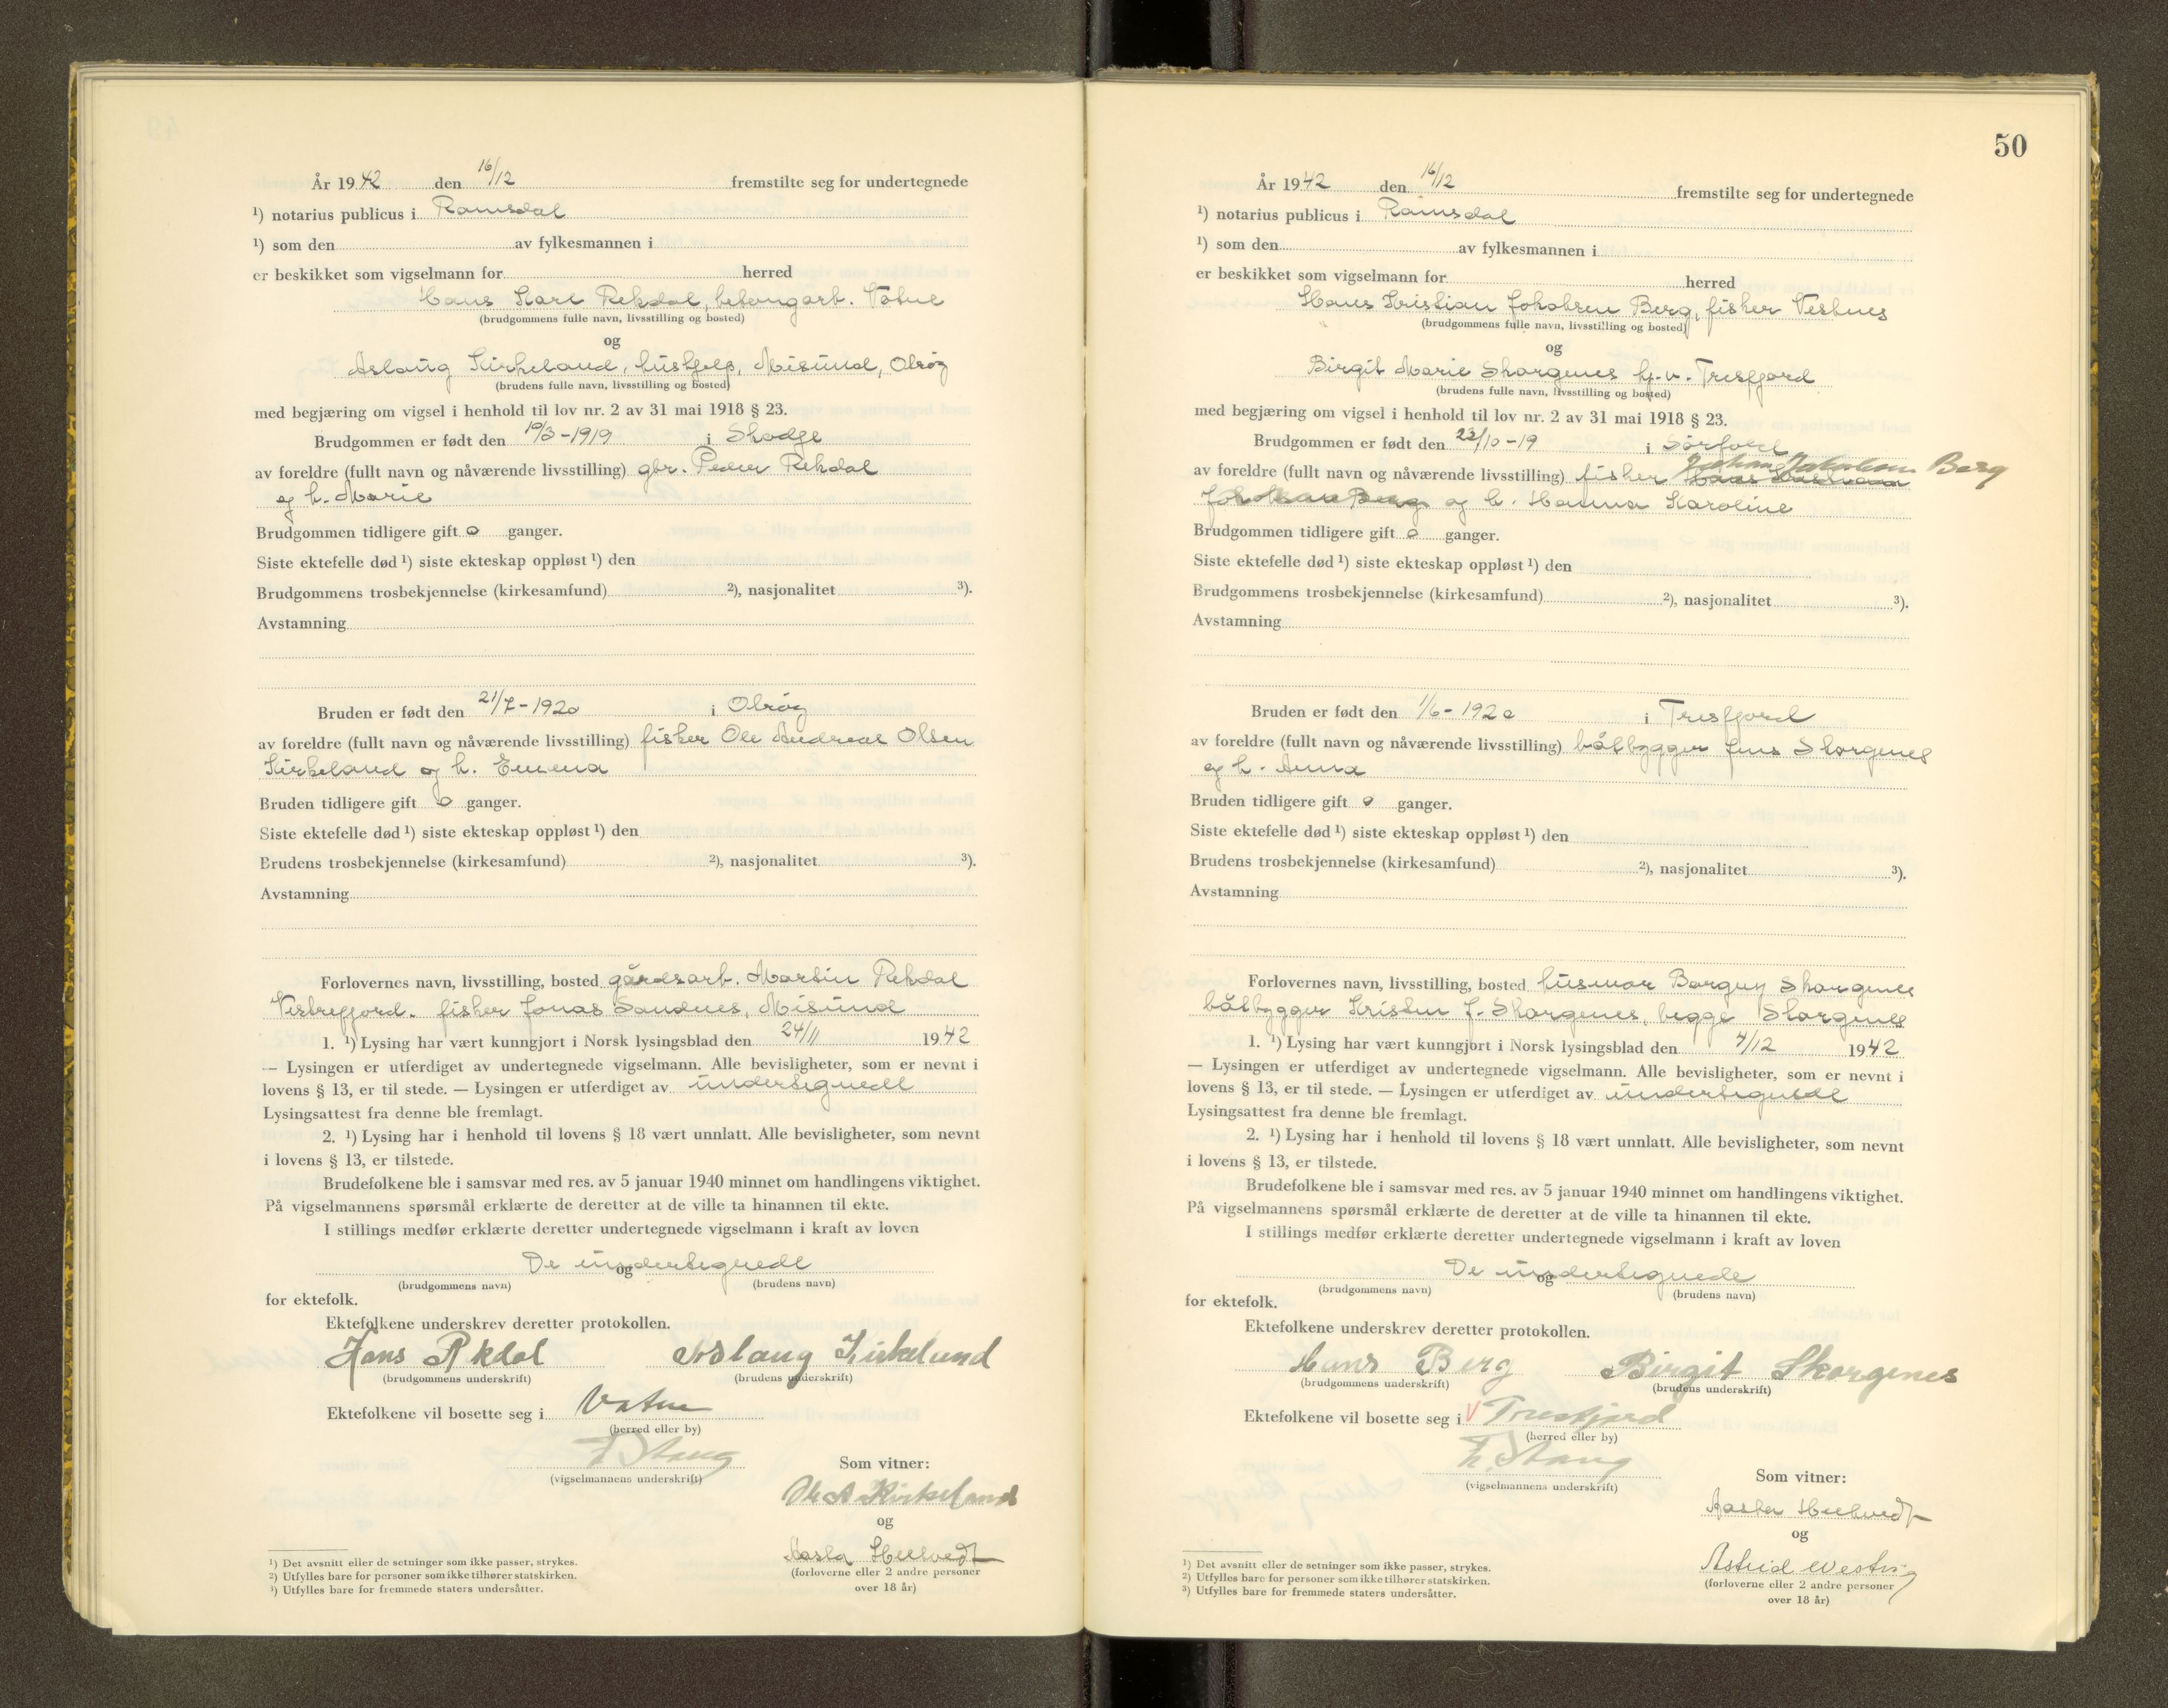 År 1942 den 16/12 fremstilte seg for undertegnede
¹) notarius publicus i Romsdal
¹) som den av fylkesmannen i
er beskikket som vigselmann for herred
Hans Kare Rekdal, betongarb. Vatne
(brudgommens fulle navn, livsstilling og bosted)
og
Aslaug Kirkeland, hushjelp, Misund, Otrøy
(brudens fulle navn, livsstilling og bosted)
med begjæring om vigsel i henhold til lov nr. 2 av 31 mai 1918 § 23.
Brudgommen er født den 10/3-1919 i Skodje
av foreldre (fullt navn og nåværende livsstilling) gbr. Peder Rekdal
og h. Marie
Brudgommen tidligere gift 0 ganger.
Siste ektefelle død ¹) siste ekteskap oppløst ¹) den
Brudgommens trosbekjennelse (kirkesamfund) ²), nasjonalitet ³).
Avstamning
Bruden er født den 21/7-1920 i Otrøy
av foreldre (fullt navn og nåværende livsstilling) fisker Ole Andreas Olsen
Kirkeland og h. Emena
Bruden tidligere gift 0 ganger.
Siste ektefelle død ¹) siste ekteskap oppløst ¹) den
Brudens trosbekjennelse (kirkesamfund) ²), nasjonalitet ³).
Avstamning
Forlovernes navn, livsstilling, bosted gårdsarb. Martin Rekdal
Vestrefjord. fisker Jonas Sandnes, Misund
1. ¹) Lysing har vært kunngjort i Norsk lysingsblad den 24/11 1942
— Lysingen er utferdiget av undertegnede vigselmann. Alle bevisligheter, som er nevnt i
lovens § 13, er til stede. — Lysingen er utferdiget av undertegnede
Lysingsattest fra denne ble fremlagt.
2. ¹) Lysing har i henhold til lovens § 18 vært unnlatt. Alle bevisligheter, som nevnt
i lovens § 13, er tilstede.
Brudefolkene ble i samsvar med res. av 5 januar 1940 minnet om handlingens viktighet.
På vigselmannens spørsmål erklærte de deretter at de ville ta hinannen til ekte.
I stillings medfør erklærte deretter undertegnede vigselmann i kraft av loven
De undertegnede
og
(brudgommens navn) (brudens navn)
for ektefolk.
Ektefolkene underskrev deretter protokollen.
Hans Rekdal Aslaug Kirkelund
(brudgommens underskrift) (brudens underskrift)
Ektefolkene vil bosette seg i Vatne
(herred eller by)
E. Stang
(vigselmannens underskrift)
Som vitner:
Ole A Kirkeland
og
Aasta Heltvedt
(forloverne eller 2 andre personer
over 18 år)
¹) Det avsnitt eller de setninger som ikke passer, strykes.
²) Utfylles bare for personer som ikke tilhører statskirken.
³) Utfylles bare for fremmede staters undersåtter.
50
År 1942 den 16/12 fremstilte seg for undertegnede
¹) notarius publicus i Romsdal
¹) som den av fylkesmannen i
er beskikket som vigselmann for herred
Hans Kristian Jakobsen Berg, fisker Vestnes
(brudgommens fulle navn, livsstilling og bosted)
og
Birgit Marie Skorgenes hj.v. Tresfjord
(brudens fulle navn, livsstilling og bosted)
med begjæring om vigsel i henhold til lov nr. 2 av 31 mai 1918 § 23.
Brudgommen er født den 22/10-19 i Sørfold
av foreldre (fullt navn og nåværende livsstilling) fisker Johan Jakobsen Berg
og h. Hanna Karoline
Brudgommen tidligere gift 0 ganger.
Siste ektefelle død ¹) siste ekteskap oppløst ¹) den
Brudgommens trosbekjennelse (kirkesamfund) ²), nasjonalitet ³).
Avstamning
Bruden er født den 1/6-1920 i Tresfjord
av foreldre (fullt navn og nåværende livsstilling) båtbygger Jens Skorgenes
og h. Anna
Bruden tidligere gift 0 ganger.
Siste ektefelle død ¹) siste ekteskap oppløst ¹) den
Brudens trosbekjennelse (kirkesamfund) ²), nasjonalitet ³).
Avstamning
Forlovernes navn, livsstilling, bosted husmor Borguy Skorgenes
båtbygger Kristen J. Skorgenes, begge Skorgenes
1. ¹) Lysing har vært kunngjort i Norsk lysingsblad den 4/12 1942
— Lysingen er utferdiget av undertegnede vigselmann. Alle bevisligheter, som er nevnt i
lovens § 13, er til stede. — Lysingen er utferdiget av undertegnede
Lysingsattest fra denne ble fremlagt.
2. ¹) Lysing har i henhold til lovens § 18 vært unnlatt. Alle bevisligheter, som nevnt
i lovens § 13, er tilstede.
Brudefolkene ble i samsvar med res. av 5 januar 1940 minnet om handlingens viktighet.
På vigselmannens spørsmål erklærte de deretter at de ville ta hinannen til ekte.
I stillings medfør erklærte deretter undertegnede vigselmann i kraft av loven
De undertegnede
og
(brudgommens navn) (brudens navn)
for ektefolk.
Ektefolkene underskrev deretter protokollen.
Hans Berg Birgit Skorgenes
(brudgommens underskrift) (brudens underskrift)
Ektefolkene vil bosette seg i V Tresfjord
(herred eller by)
E. Stang
(vigselmannens underskrift)
Som vitner:
Aasta Heltvedt
og
Astrid Westvig
(forloverne eller 2 andre personer
over 18 år)
¹) Det avsnitt eller de setninger som ikke passer, strykes.
²) Utfylles bare for personer som ikke tilhører statskirken.
³) Utfylles bare for fremmede staters undersåtter.